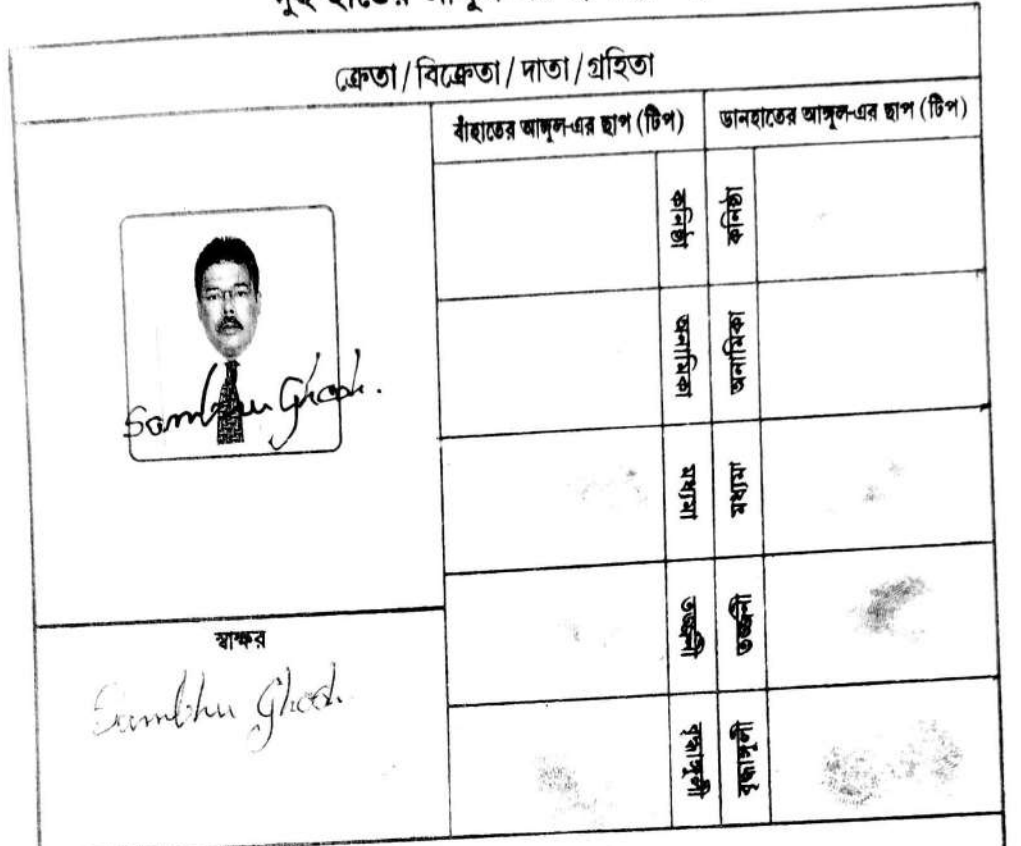 ক্রেতা / বিক্রেতা / দাতা / গ্রহিতা
বাঁহাতের আঙ্গুল-এর ছাপ (টিপ)
ডানহাতের আঙ্গুল-এর ছাপ (টিপ)
কনিষ্ঠা
কনিষ্ঠা
অনামিকা
অনামিকা
মধ্যমা
মধ্যমা
তর্জ্জনী
তর্জ্জনী
বৃদ্ধাঙ্গুলী
বৃদ্ধাঙ্গুলী
Sambhu Ghosh.
স্বাক্ষর
Sambhu Ghosh.